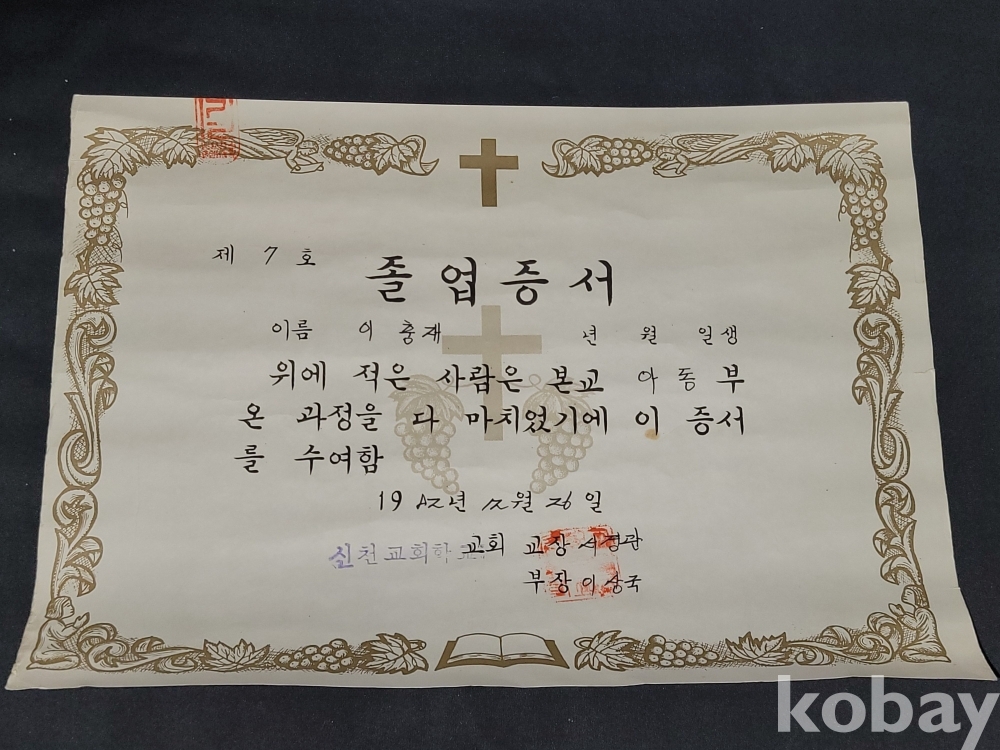 제 7 호
졸업증서
이름 이충재 년 월 일생
위에 적은 사람은 본교 아동부
온 과정을 다 마치었기에 이 증서
를 수여함
19 년 12월 26일
신천교회학교 교회 교장 서경
부장 이상국
kobay